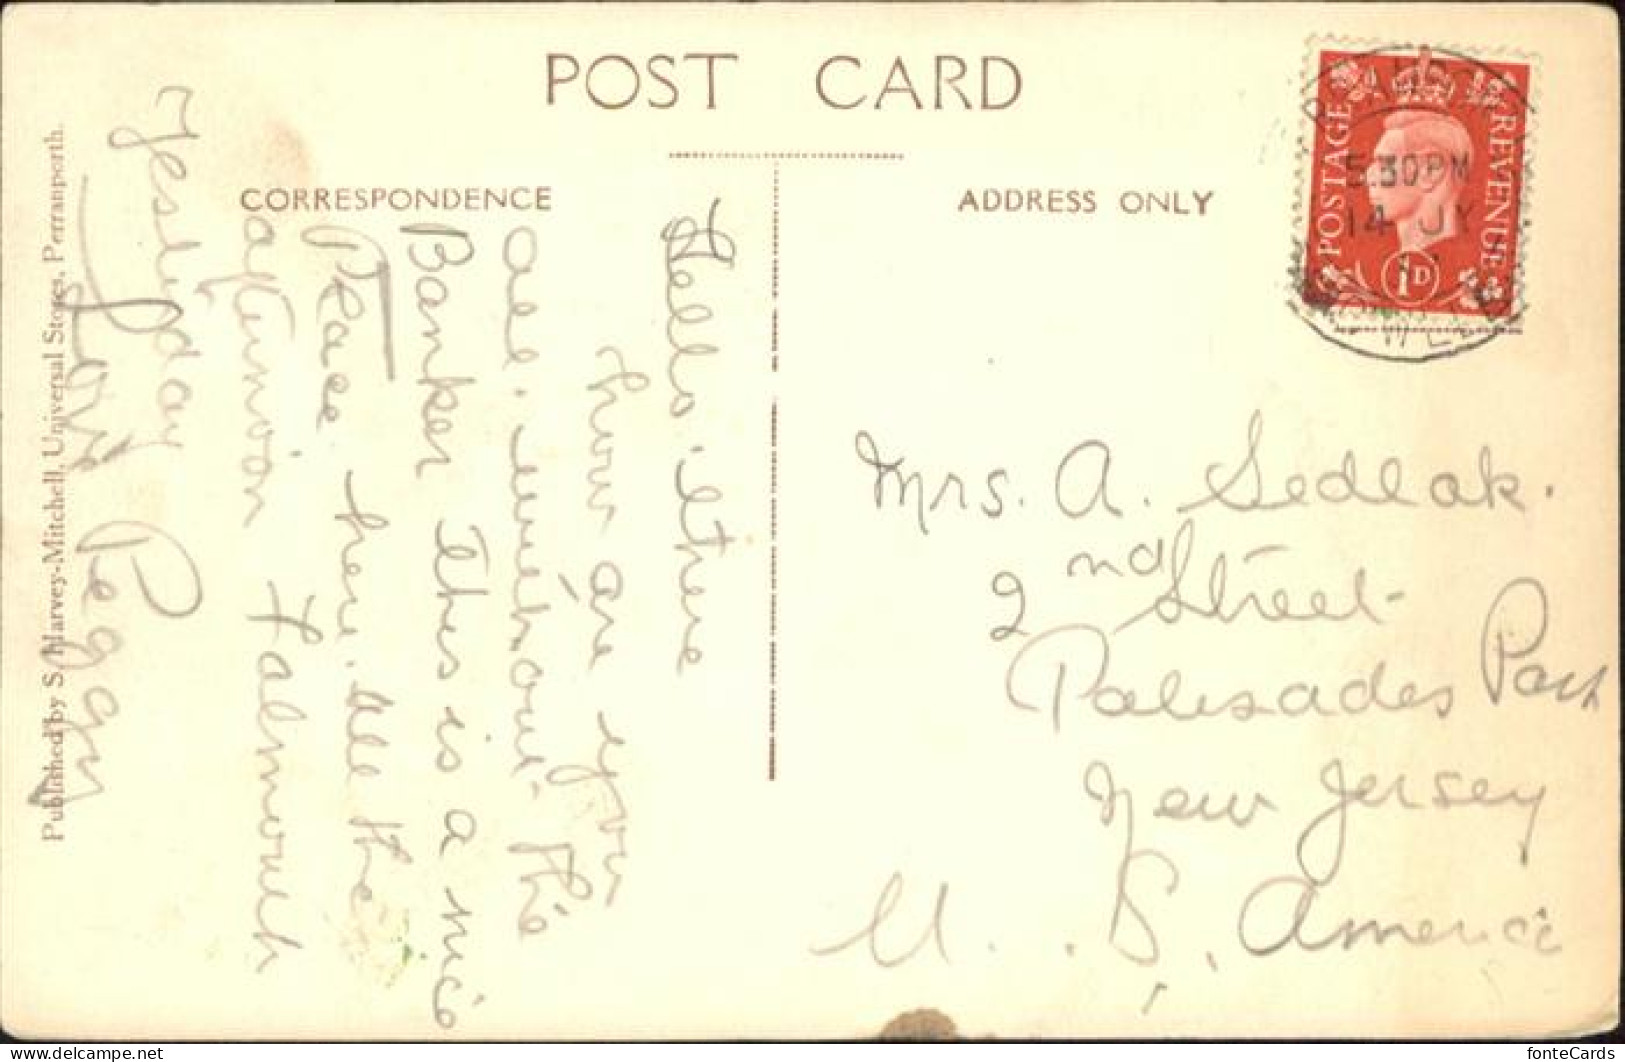 POST CARD
CORRESPONDENCE
ADDRESS ONLY
POSTAGE REVENUE
1D
5.30PM
14 JY
Hello. there
how are you
all. without the
Banker This is a nice
Place here. all the
afternoon Falmouth
Yesterday
Love Peggy
Mrs. A. Sedlak.
2nd Street
Palisades Park
New Jersey
U. S. America
Published by S. Harvey-Mitchell, Universal Stores, Perranporth.
fonteCards